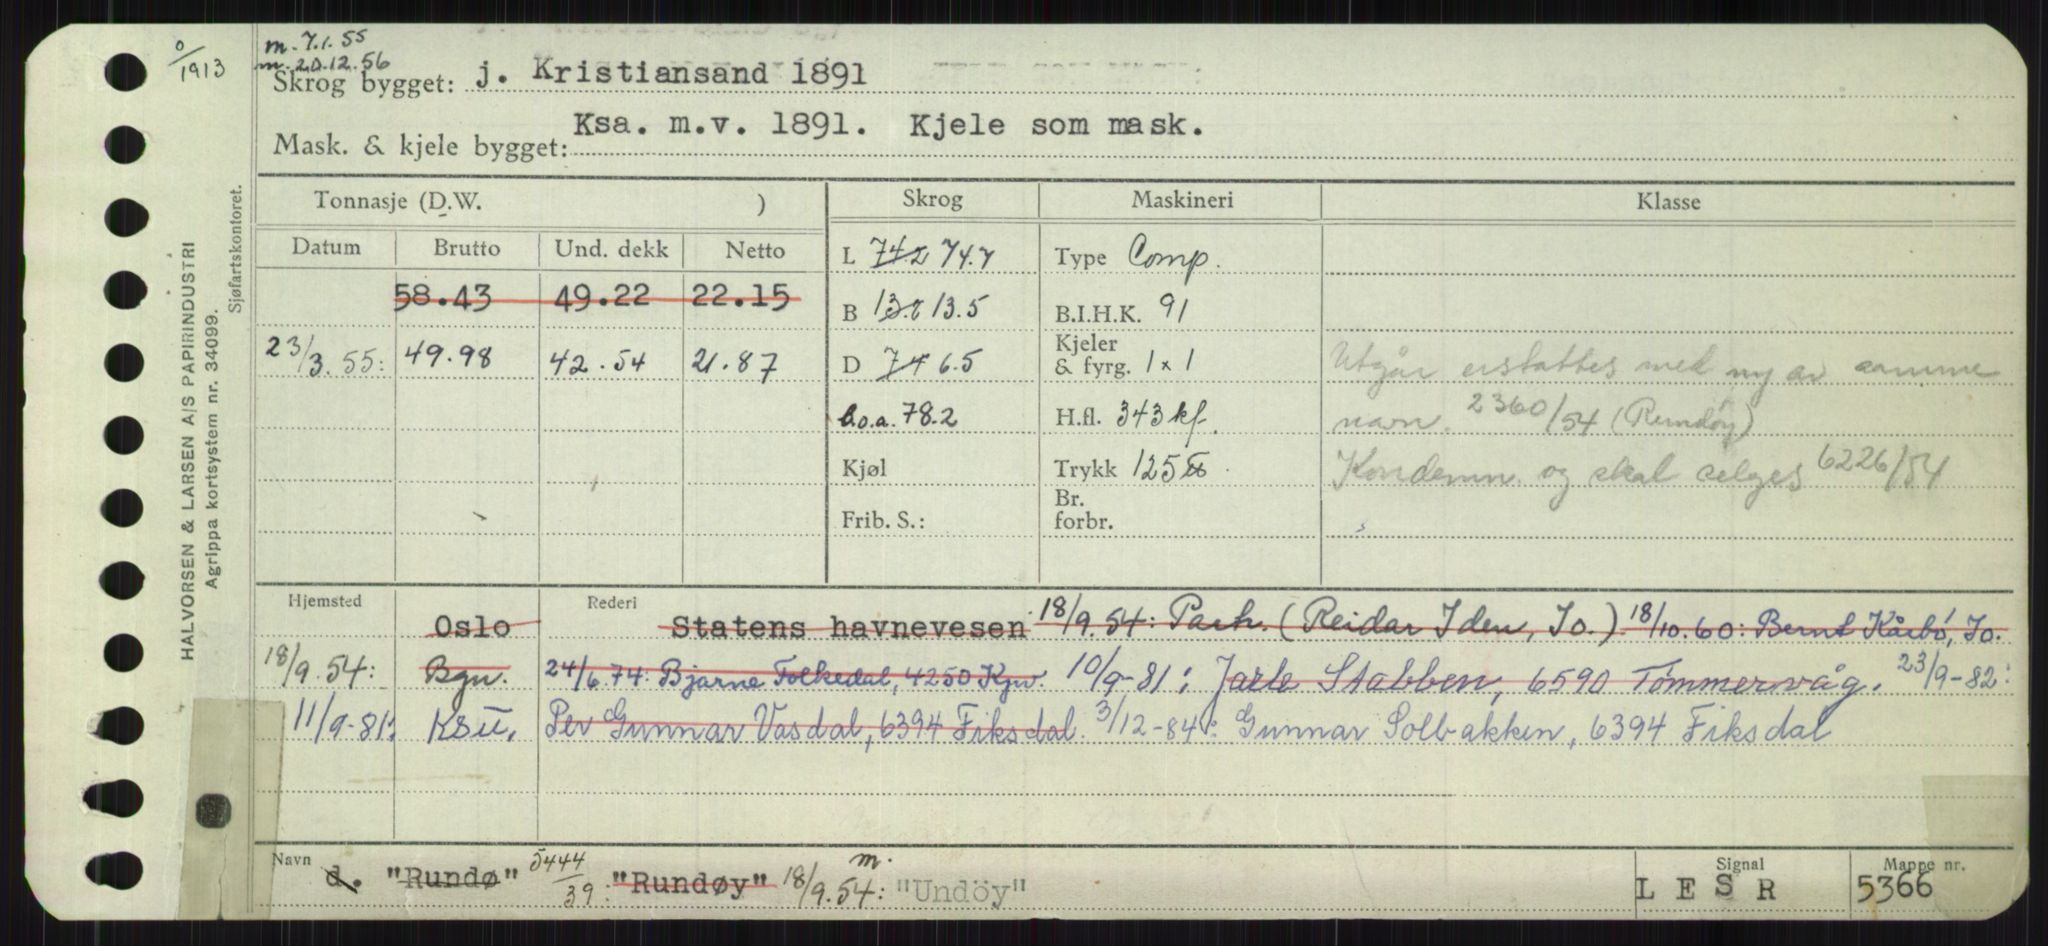 0/1913
m. 7.1.55
m. 20.12.56
Skrog bygget: j. Kristiansand 1891
Mask. & kjele bygget: Ksa. m.v. 1891. Kjele som mask.
HALVORSEN & LARSEN A/S PAPIRINDUSTRI
Agrippa kortsystem nr. 34099.
Sjøfartskontoret.
Tonnasje (D.W. ) Skrog Maskineri Klasse
Datum Brutto Und. dekk Netto
L 74.2 74.7 Type Comp.
58.43 49.22 22.15
B 13.8 13.5 B.I.H.K. 91
23/3.55: 49.98 42.54 21.87
D 7.4 6.5 Kjeler & fyrg. 1 x 1
Utgår erstattes med ny av samme
L.o.a. 78.2 H.fl. 343 kf.
navn. 2360/54 (Rundøy)
Kjøl Trykk 125 lb.
Kondemn. og skal selges 6226/54
Frib. S.: Br. forbr.
Hjemsted Rederi
Oslo Statens havnevesen 18/9.54: Part. (Reidar Iden, Io.) 18/10.60: Bernt Kårbø, Io.
18/9.54: Bgn. 24/6.74: Bjarne Folkedal, 4250 Kpv. 10/9-81: Jarle Stabben, 6590 Tømmervåg. 23/9-82:
11/9-81: KSU. Per Gunnar Vasdal, 6394 Fiksdal. 3/12-84: Gunnar Solbakken, 6394 Fiksdal
Navn Signal Mappe nr.
d. "Rundø" 5444/39: "Rundøy" 18/9.54: m. "Undöy" LESR 5366